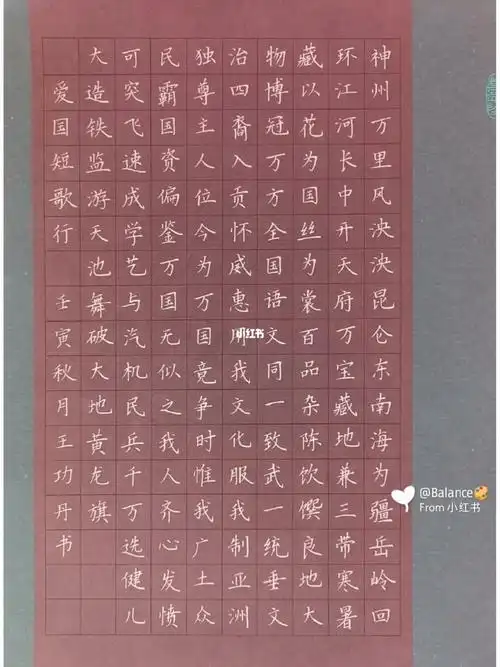 神州万里风泱泱昆仑东南海为疆岳岭回
环江河长中开天府万宝藏地兼三带寒暑
藏以花为国丝为裳百品杂陈饮馔良地大
物博冠万方全国语文同一致武一统垂文
治四裔入贡怀威惠我文化服我制亚洲
独尊主人位今为万国竟争时惟我广土众
民霸国资偏鉴万国无似之我人齐心发愤
可突飞速成学艺与汽机民兵千万选健儿
大造铁监游天池舞破大地黄龙旗
爱国短歌行 壬寅秋月王功丹书
小红书
@Balance🍪
From 小红书